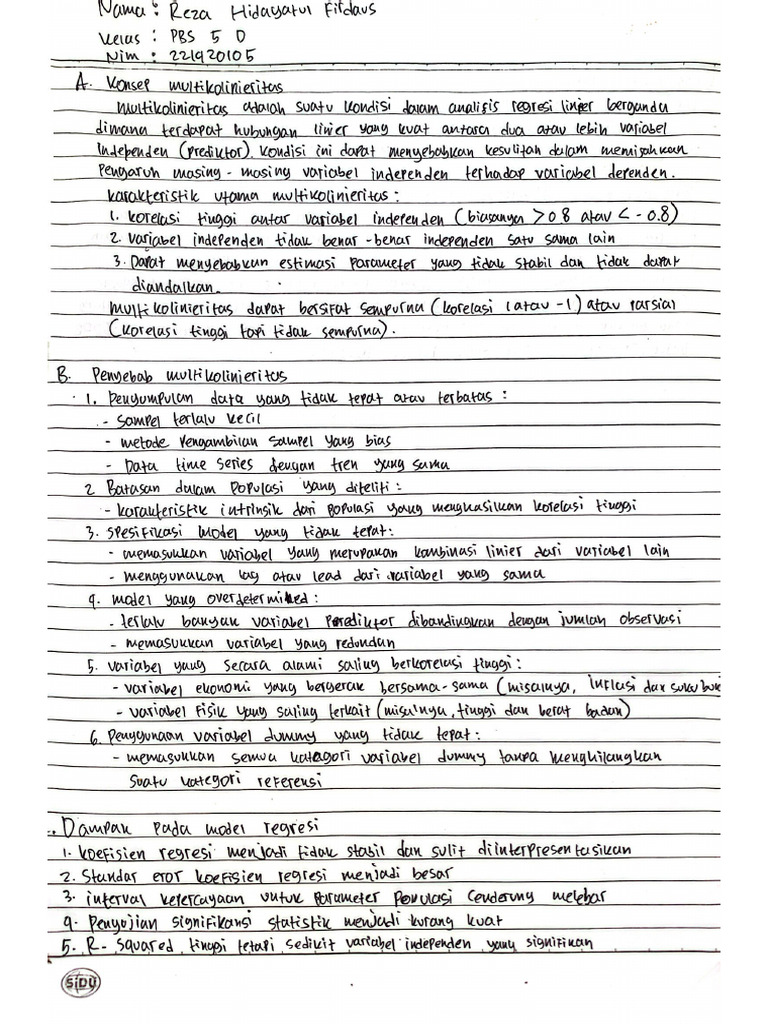 Nama : Reza Hidayatul Firdaus
Kelas : PBS 5 D
Nim : 221920105
A. Konsep multikolinieritas
multikolinieritas adalah suatu kondisi dalam analisis regresi linier berganda
dimana terdapat hubungan linier yang kuat antara dua atau lebih variabel
Independen (prediktor). Kondisi ini dapat menyebabkan kesulitan dalam memisahkan
Pengaruh masing-masing variabel independen terhadap variabel dependen.
Karakteristik utama multikolinieritas :
1. Korelasi tinggi antar variabel independen (biasanya > 0.8 atau < -0.8)
2. variabel independen tidak benar-benar independen satu sama lain
3. Dapat menyebabkan estimasi parameter yang tidak stabil dan tidak dapat
diandalkan.
multikolinieritas dapat bersifat sempurna (korelasi 1 atau -1) atau Parsial
(Korelasi tinggi tapi tidak sempurna).
B. Penyebab multikolinieritas
1. Pengumpulan data yang tidak tepat atau terbatas :
- sampel terlalu kecil
- metode Pengambilan sampel yang bias
- Data time series dengan tren yang sama
2 Batasan dalam Populasi yang diteliti :
- karakteristik intrinsik dari populasi yang menghasilkan korelasi tinggi
3. Spesifikasi model yang tidak tepat :
- memasukkan variabel yang merupakan kombinasi linier dari variabel lain
- menggunakan lag atau lead dari variabel yang sama
4. model yang overdetermined :
- terlalu banyak variabel prediktor dibandingkan dengan jumlah observasi
- memasukkan variabel yang redundan
5. variabel yang secara alami saling berkorelasi tinggi :
- variabel ekonomi yang bergerak bersama-sama (misalnya, Inflasi dan suku
- variabel fisik yang saling terkait (misalnya, tinggi dan berat badan)
6. Penggunaan variabel dummy yang tidak tepat :
- memasukkan semua kategori variabel dummy tanpa menghilangkan
suatu kategori referensi
Dampak pada model regresi
1. Koefisien regresi menjadi tidak stabil dan sulit diinterpresentasikan
2. Standar eror koefisien regresi menjadi besar
3. interval kepercayaan untuk parameter populasi cenderung melebar
4. Pengujian signifikansi statistik menjadi kurang kuat
5. R-Squared tinggi tetapi sedikit variabel independen yang signifikan
SiDU